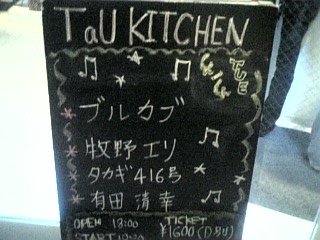 TaU KITCHEN
TUE
ブルカブ
牧野エリ
タカギ416号
有田 清幸
OPEN 18:00 TICKET
START ¥1600 (D別)